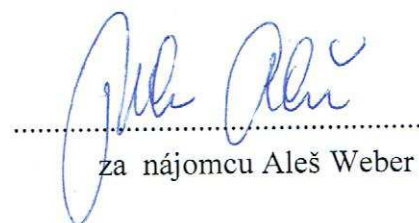 za nájomcu Aleš Weber